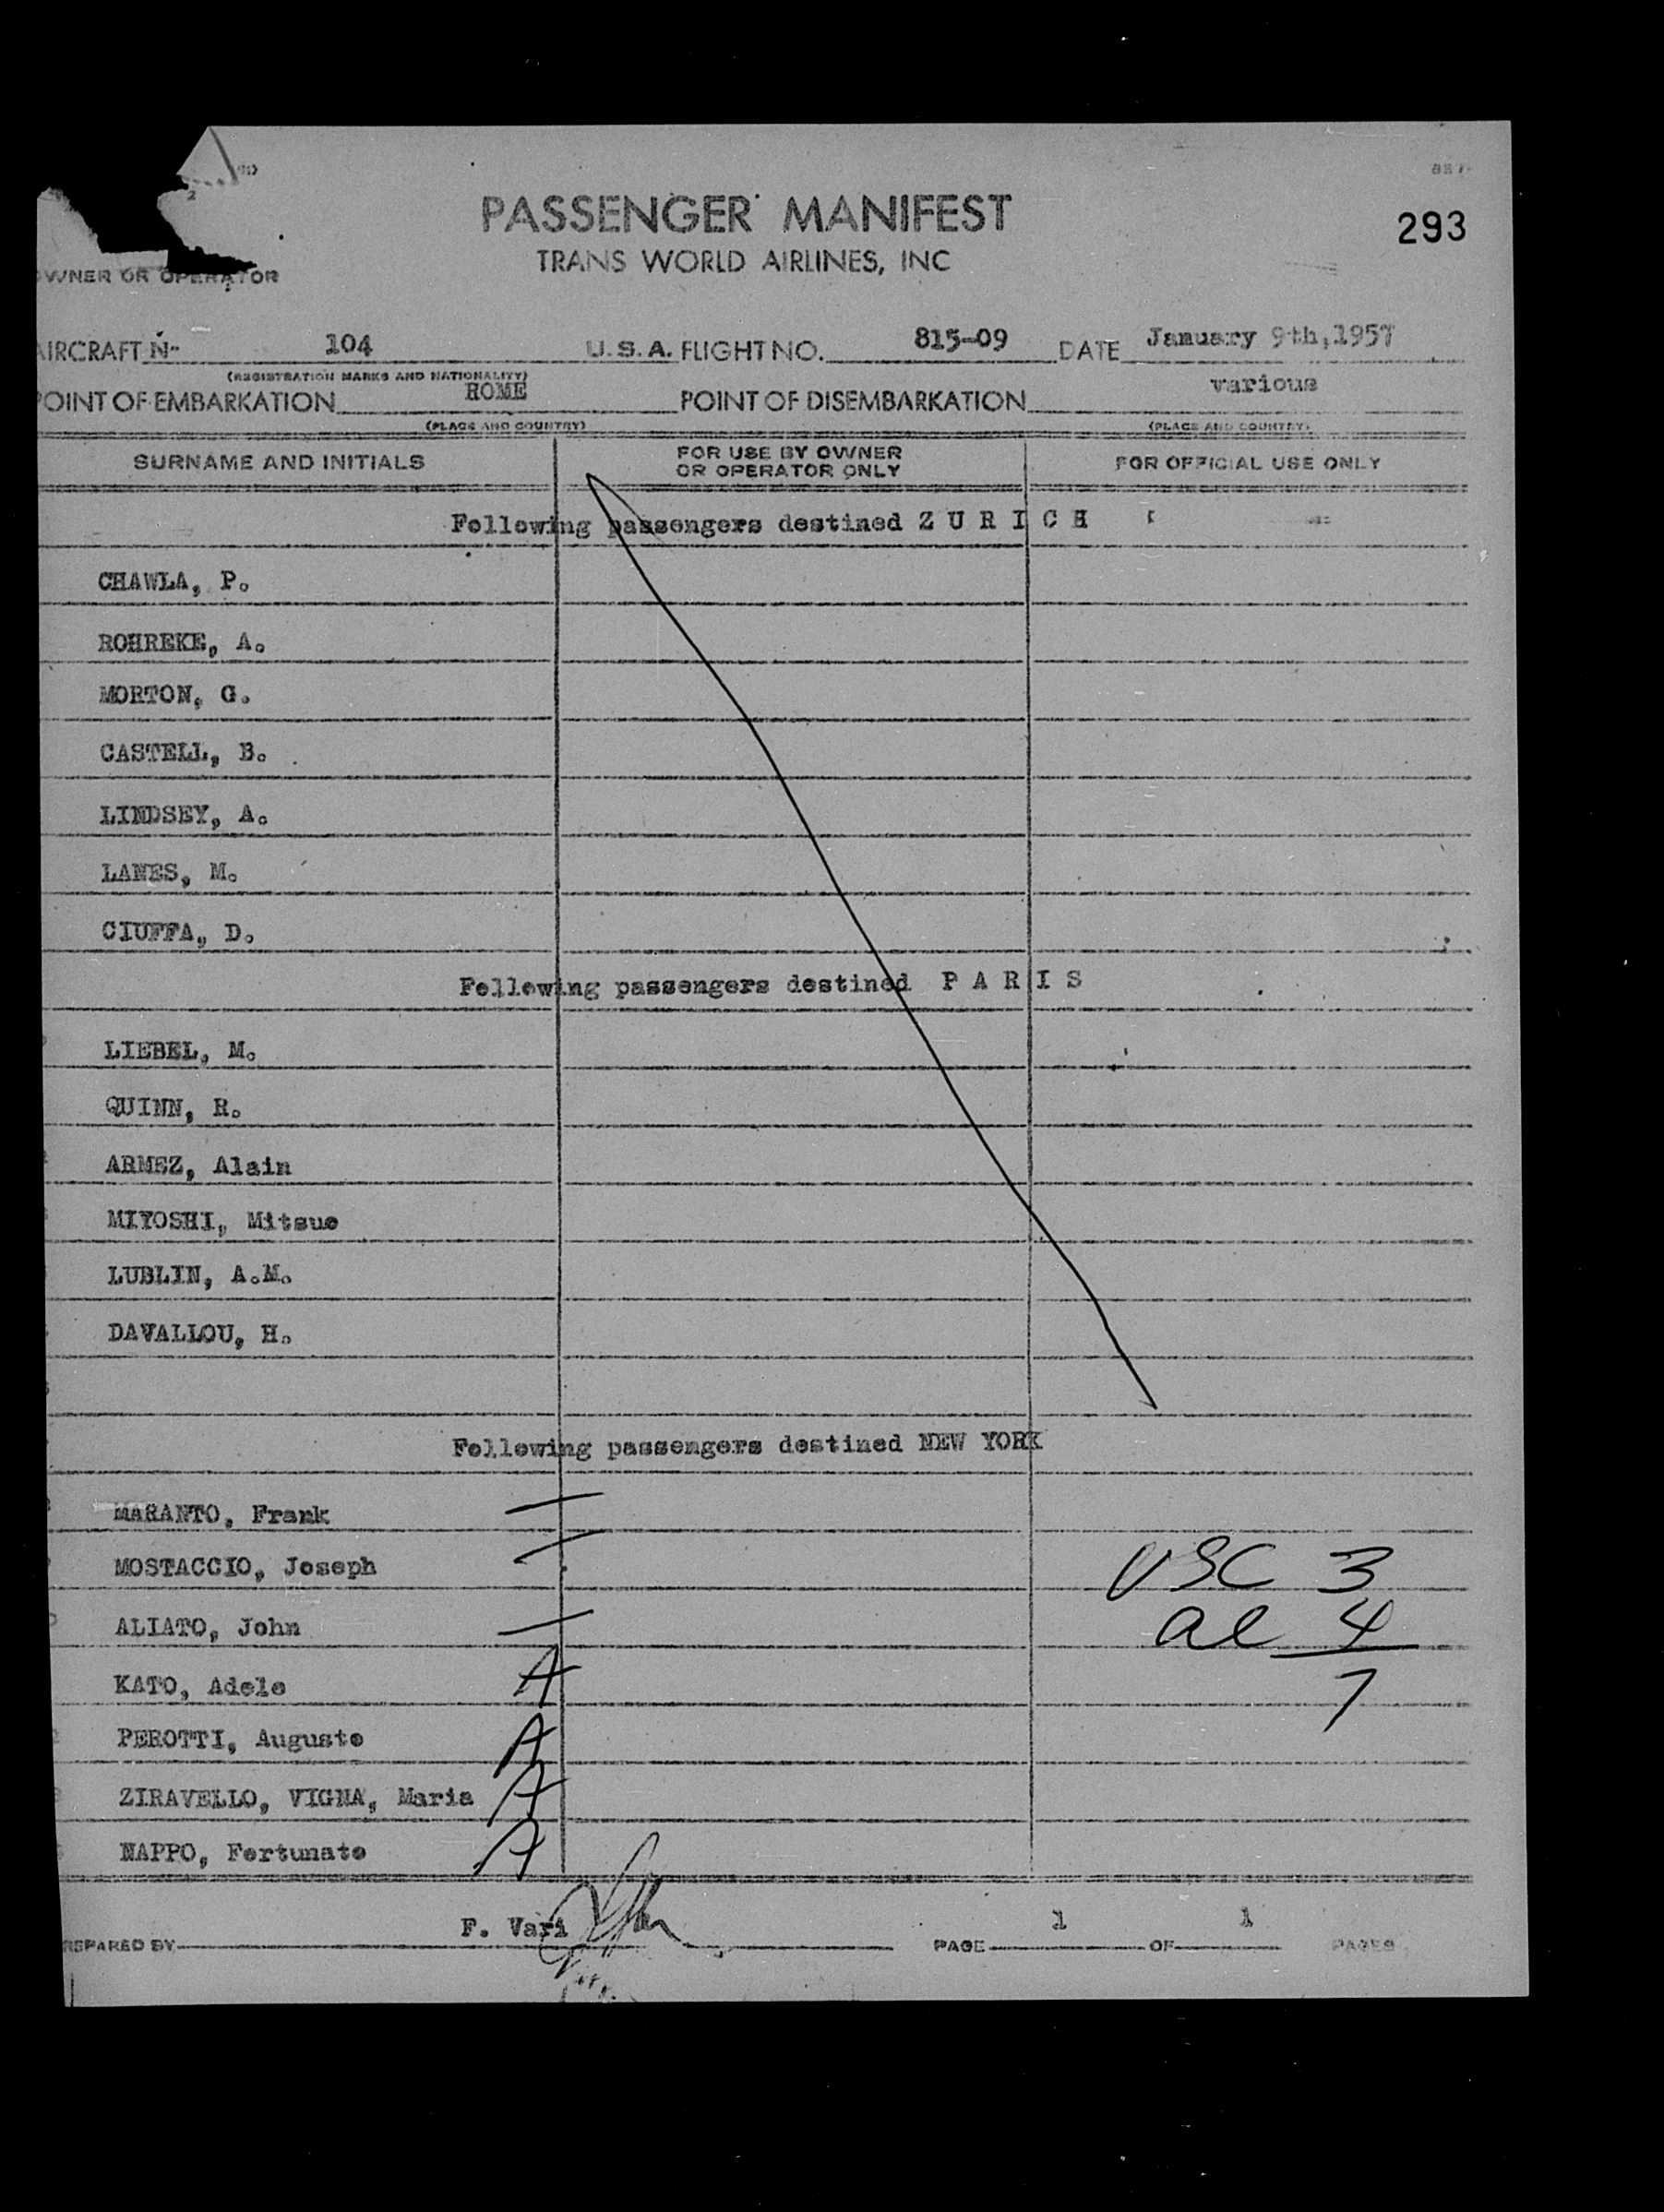 PASSENGER MANIFEST
293
TRANS WORLD AIRLINES, INC
OWNER OR OPERATOR
AIRCRAFT N- 104 U.S.A. FLIGHT NO. 815-09 DATE January 9th,1957
(REGISTRATION MARKS AND NATIONALITY)
POINT OF EMBARKATION ROME POINT OF DISEMBARKATION various
(PLACE AND COUNTRY) (PLACE AND COUNTRY)
SURNAME AND INITIALS FOR USE BY OWNER OR OPERATOR ONLY FOR OFFICIAL USE ONLY
Following passengers destined Z U R I C H
CHAWLA, P.
ROHREKE, A.
MORTON, G.
CASTELL, B.
LINDSEY, A.
LANES, M.
CIUFFA, D.
Following passengers destined P A R I S
LIEBEL, M.
QUINN, R.
ARMEZ, Alain
MIYOSHI, Mitsue
LUBLIN, A.M.
DAVALLOU, H.
Following passengers destined NEW YORK
MARANTO, Frank —
MOSTACCIO, Joseph — USC 3
ALIATO, John — al 4
KATO, Adele A 7
PEROTTI, Augusto A
ZIRAVELLO, VIGNA, Maria A
NAPPO, Fortunato A
PREPARED BY F. Vari PAGE 1 OF 1 PAGES